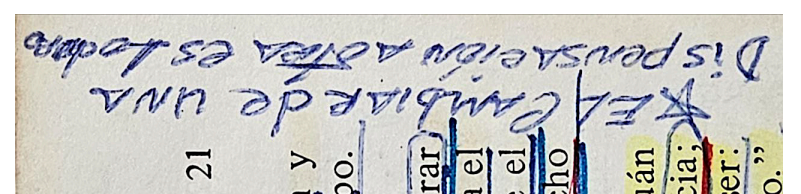 *EL CAMBIAR de UNA
Dispensación A OTRA es
21
y
po.
rar
a el
e el
cho
uán
cia;
per:
o.”